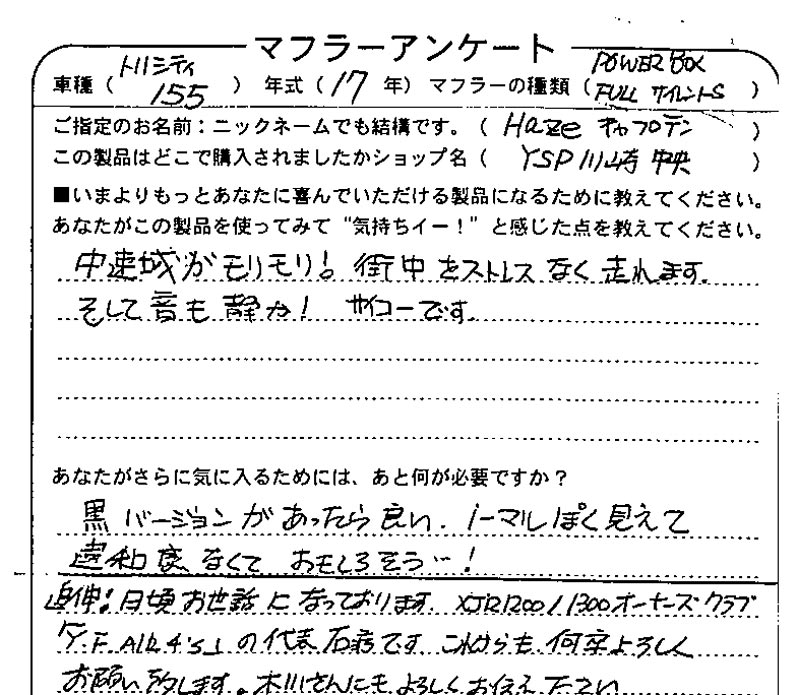 マフラーアンケート
車種（トリシティ155） 年式（17年） マフラーの種類（POWER BOX FULL サイレントS）
ご指定のお名前：ニックネームでも結構です。（Haze キャプテン）
この製品はどこで購入されましたかショップ名（YSP川崎中央）
■いまよりもっとあなたに喜んでいただける製品になるために教えてください。
あなたがこの製品を使ってみて“気持ちイー！”と感じた点を教えてください。
中速域がモリモリ！街中をストレスなく走れます。
そして音も静か！ サイコーです。
あなたがさらに気に入るためには、あと何が必要ですか？
黒バージョンがあったら良い。ノーマルぽく見えて
違和感なくて おもしろそう…！
追伸！日頃お世話になっております。XJR1200/1300オーナーズクラブ
の代表 です。これからも何卒よろしく
お願い致します。木川さんにもよろしくお伝え下さい